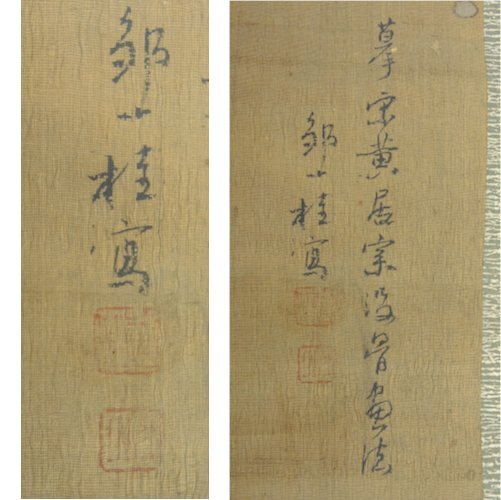 鄒一桂寫
摹宋黃居寀沒骨畫法
鄒一桂寫